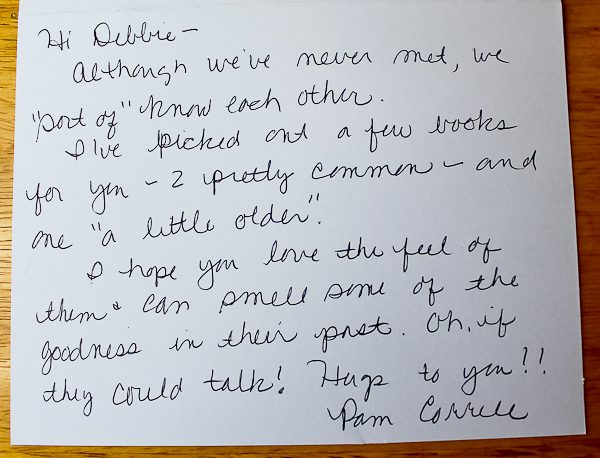 Hi Debbie -
Although we've never met, we
"sort of" know each other.
I've picked out a few books
for you - 2 pretty common - and
one "a little older".
I hope you love the feel of
them & can smell some of the
goodness in their past. Oh, if
they could talk! Hugs to you!!
Pam Correll